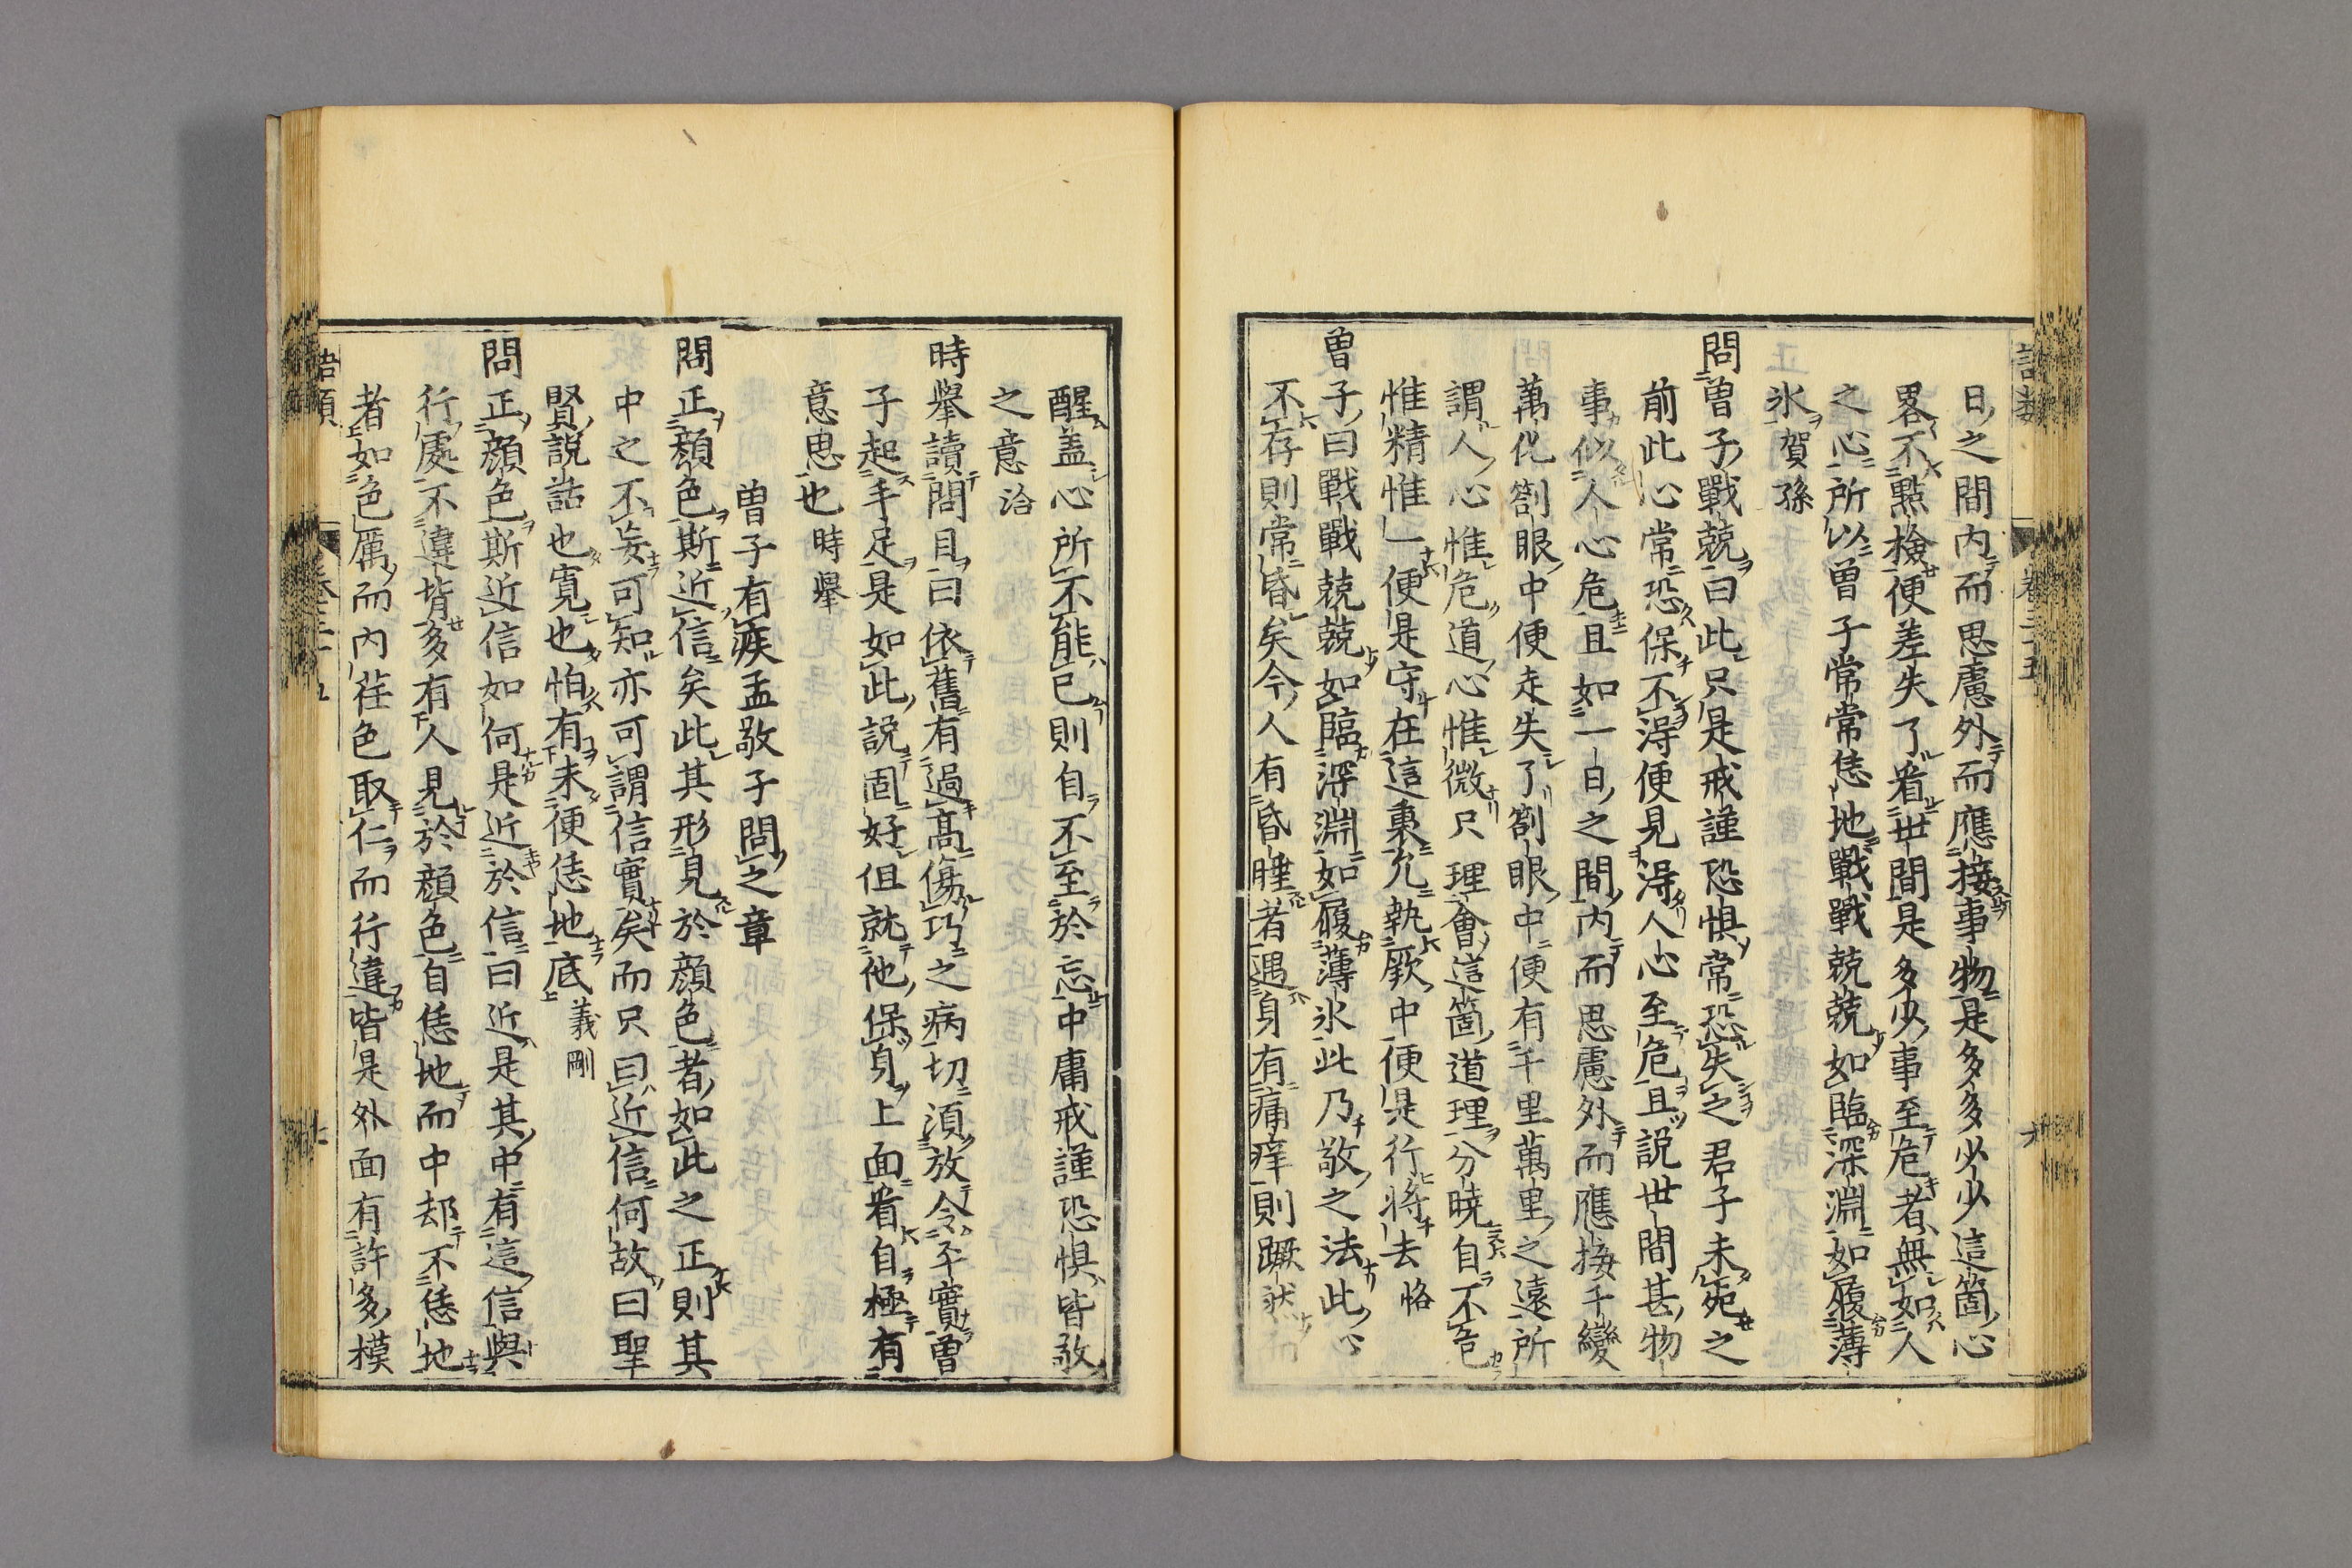 日之間内而思慮外而應接事物是多多少少這箇心
畧不點檢便差失了看世間是多少事至危者無如人
之心所以曽子常常恁地戰戰兢兢如臨深淵如履薄
氷賀孫
問曽子戰兢曰此只是戒謹恐惧常恐失之君子未死之
前此心常恐保不得便見得人心至危且説世間甚物
事似人心危且如一日之間内而思慮外而應接千變
萬化劄眼中便走失了劄眼中便有千里萬里之遠所
謂人心惟危道心惟微只理會這箇道理分曉自不危
惟精惟一便是守在這裏允執厥中便是行將去恪
曽子曰戰戰兢兢如臨深淵如履薄氷此乃敬之法此心
不存則常昏矣今人有昏睡者遇身有痛痒則蹶然而
醒盖心所不能已則自不至於忘中庸戒謹恐惧皆敬
之意洽
時擧讀問目曰依舊有過高傷巧之病切須放令平實曽
子起手足是如此説固好但就他保身上面看自極有
意思也時擧
曽子有疾孟敬子問之章
問正顔色斯近信矣此其形見於顔色者如此之正則其
中之不妄可知亦可謂信實矣而只曰近信何故曰聖
賢説話也寛也怕有未便恁地底義剛
問正顔色斯近信如何是近於信曰近是其中有這信與
行處不違背多有人見於顔色自恁地而中却不恁地
者如色厲而内荏色取仁而行違皆是外面有許多模